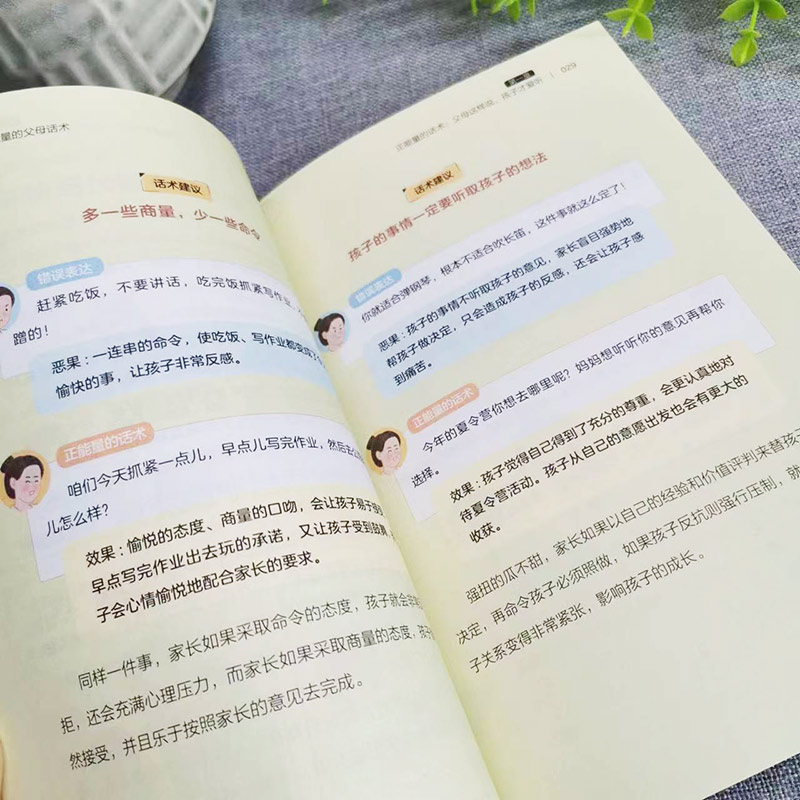 量的父母话术
话术建议
多一些商量，少一些命令
错误表达
赶紧吃饭，不要讲话，吃完饭抓紧写作业，
蹭的！
恶果：一连串的命令，使吃饭、写作业都变成了
愉快的事，让孩子非常反感。
正能量的话术
咱们今天抓紧一点儿，早点儿写完作业，然后去公
儿怎么样？
效果：愉悦的态度、商量的口吻，会让孩子易于接
早点写完作业出去玩的承诺，又让孩子受到鼓
子会心情愉悦地配合家长的要求。
同样一件事，家长如果采取命令的态度，孩子就会非
拒，还会充满心理压力，而家长如果采取商量的态度，孩子
然接受，并且乐于按照家长的意见去完成。
第一章
正能量的话术：父母这样说，孩子才爱听 | 029
话术建议
孩子的事情一定要听取孩子的想法
错误表达
你就适合弹钢琴，根本不适合吹长笛，这件事就这么定了！
恶果：孩子的事情不听取孩子的意见，家长盲目强势地
帮孩子做决定，只会造成孩子的反感，还会让孩子感
到痛苦。
正能量的话术
今年的夏令营你想去哪里呢？妈妈想听听你的意见再帮你
选择。
效果：孩子觉得自己得到了充分的尊重，会更认真地对
待夏令营活动。孩子从自己的意愿出发也会有更大的
收获。
强扭的瓜不甜，家长如果以自己的经验和价值评判来替孩子
决定，再命令孩子必须照做，如果孩子反抗则强行压制，就
子关系变得非常紧张，影响孩子的成长。